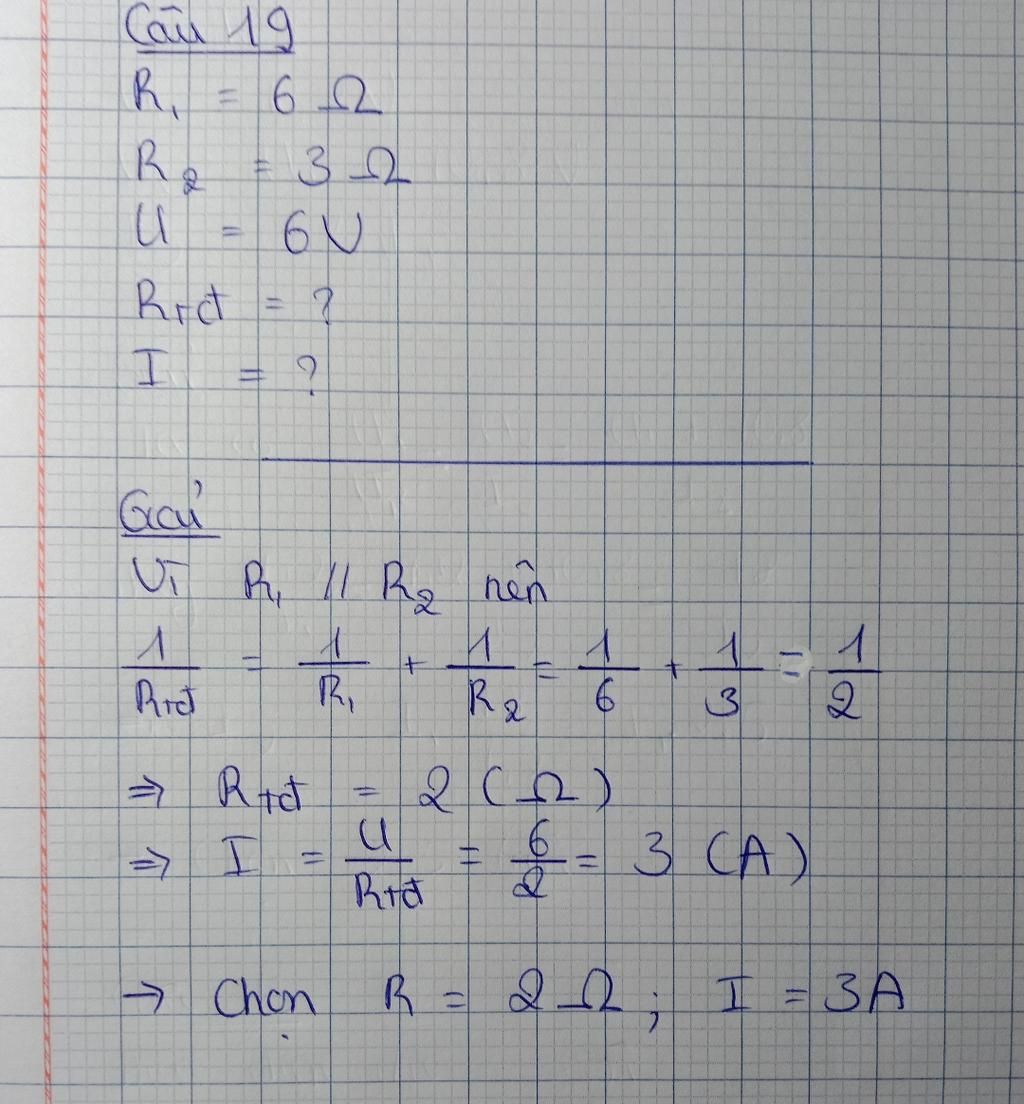 Câu 19
R₁ = 6 Ω
R₂ = 3 Ω
U = 6V
Rtđ = ?
I = ?
Giải
Vì R₁ // R₂ nên
1/Rtđ = 1/R₁ + 1/R₂ = 1/6 + 1/3 = 1/2
⇒ Rtđ = 2 (Ω)
⇒ I = U/Rtđ = 6/2 = 3 (A)
→ Chọn R = 2 Ω ; I = 3A